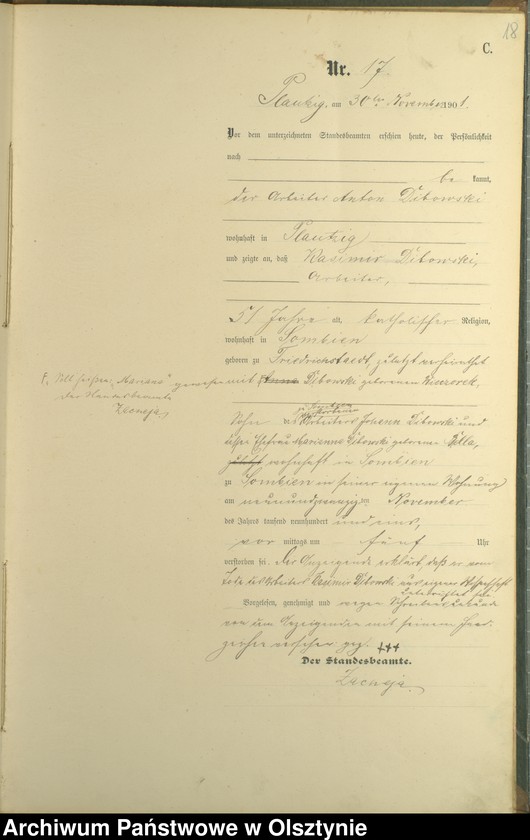 18
C.
Nr. 17.
Plautzig, am 30ten November 1901.
Vor dem unterzeichneten Standesbeamten erschien heute, der Persönlichkeit
nach
be kannt,
der Arbeiter Anton Dibowski
wohnhaft in Plautzig
und zeigte an, daß Kasimir Dibowski,
Arbeiter,
51 Jahre alt, katholischer Religion,
wohnhaft in Sombien
geboren zu Friedrichstaedt, zuletzt verheirathet
F. Soll heißen „Marianna"
gewesen mit Anna Dibowski geborenen
Der Standesbeamte
Zacneja.
Sohn des verstorbenen Arbeiters Johann Dibowski und
dessen Ehefrau Marianne Dibowski geborene
zuletzt wohnhaft in Sombien
zu Sombien in seiner eigenen Wohnung
am neunundzwanzigten November
des Jahres tausend neunhundert und eins,
vor mittags um fünf Uhr
verstorben sei. Der Anzeigende erklärt, daß er vom
Tode des Arbeiters Kasimir Dibowski aus eigener Wissenschaft
unterrichtet sei.
Vorgelesen, genehmigt und wegen Schreibensunkunde
von dem Anzeigenden mit seinem Hand-
zeichen versehen. gez. +++
Der Standesbeamte.
Zacneja.
Archiwum Państwowe w Olsztynie